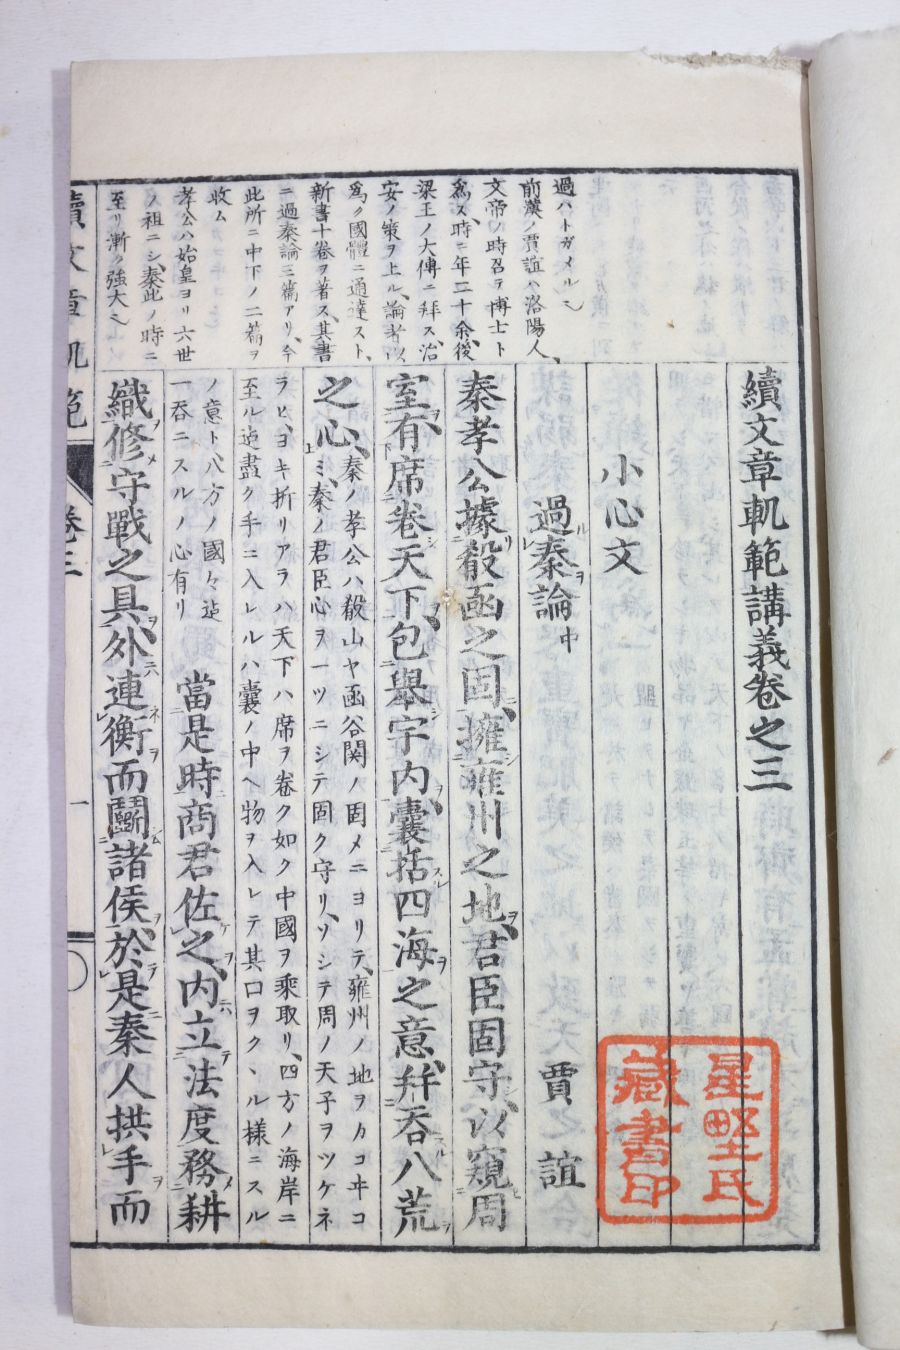 續文章軌範講義卷之三
小心文
過秦論中
賈誼
秦孝公據殽函之固、擁雍州之地、君臣固守、以窺周
室有席卷天下、包舉宇内、囊括四海之意、幷吞八荒
之心、秦ノ孝公ハ殽山ヤ函谷関ノ固メニヨリテ、雍州ノ地ヲカコヰコ
ミ、秦ノ君臣心ヲ一ツニシテ固ク守リ、ソシテ周ノ天子ヲツケネ
ラヒ、ヨキ折リアラハ天下ハ席ヲ卷ク如ク中國ヲ乘取リ、四方ノ海岸ニ
至ル迠盡ク手ニ入レルハ囊ノ中ヘ物ヲ入レテ其口ヲクヽル樣ニスル
ノ意ト、八方ノ國々迠
一吞ニスルノ心有リ
當是時商君佐之、内立法度務耕
織修守戰之具、外連衡而鬭諸侯、於是秦人拱手而
過ハトガメルニ
前漢ノ賈誼ハ洛陽人、
文帝ノ時召テ博士ト
爲ス、時ニ年二十余、後、
梁王ノ大傅ニ拜ス、治
安ノ策ヲ上ル、論者以
爲ク國體ニ通達スト、
新書十卷ヲ著ス、其書
ニ過秦論三篇アリ、今
此所ニ中下ノ二篇ヲ
收ム
孝公ハ始皇ヨリ六世
ノ祖ニシ、秦此ノ時ニ
至リ漸ク強大
續文章軌範
卷三
一
星野氏
藏書印